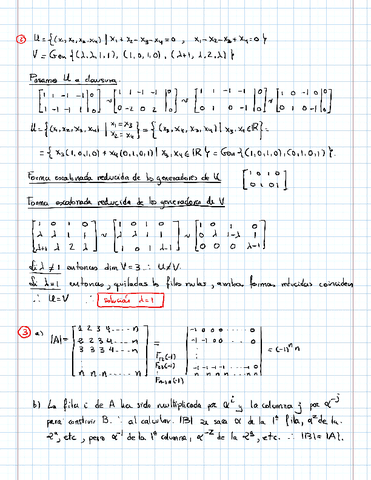 ② U = {(x₁,x₂,x₃,x₄) | x₁+x₂-x₃-x₄=0 , x₁-x₂-x₃+x₄=0}
V = Gen {(λ,λ,1,1), (1,0,1,0), (λ+1,λ,2,λ)}
Pasamos U a clausura.
[1 1 -1 -1 | 0; 1 -1 -1 1 | 0] ~ [1 1 -1 -1 | 0; 0 -2 0 2 | 0] ~ [1 1 -1 -1 | 0; 0 1 0 -1 | 0] ~ [1 0 -1 0 | 0; 0 1 0 -1 | 0]
U = {(x₁,x₂,x₃,x₄) | x₁=x₃ x₂=x₄} = {(x₃,x₄,x₃,x₄) | x₃,x₄∈ℝ} =
= {x₃(1,0,1,0)+x₄(0,1,0,1) | x₃,x₄∈ℝ} = Gen{(1,0,1,0),(0,1,0,1)}.
Forma escalonada reducida de los generadores de U [1 0 1 0; 0 1 0 1]
Forma escalonada reducida de los generadores de V
[1 0 1 0; λ λ 1 1; λ+1 λ 2 λ] ~ [1 0 1 0; λ λ 1 1; 1 0 1 λ-1] ~ [1 0 1 0; 0 λ 1-λ 1; 0 0 0 λ-1]
Si λ≠1 entonces dim V=3 ∴ U≠V.
Si λ=1 entonces, quitadas la filas nulas, ambas formas reducidas coinciden
∴ U=V ∴ solución λ=1
③ a) |A| = |1 2 3 4 ···· n; 2 2 3 4 ···· n; 3 3 3 4 ···· n; n n n n ···· n| = |-1 0 0 0 ··· 0; -1 -1 0 0 ··· 0; n n n n ···· n| = (-1)ⁿ n
b) La fila i de A ha sido multiplicada por αⁱ y la columna j por α⁻ʲ
para construir B. ∴ al calcular |B| se saca α de la 1ª fila, α² de la
2ª, etc, pero α⁻¹ de la 1ª columna, α⁻² de la 2ª, etc. ∴ |B|=|A|.